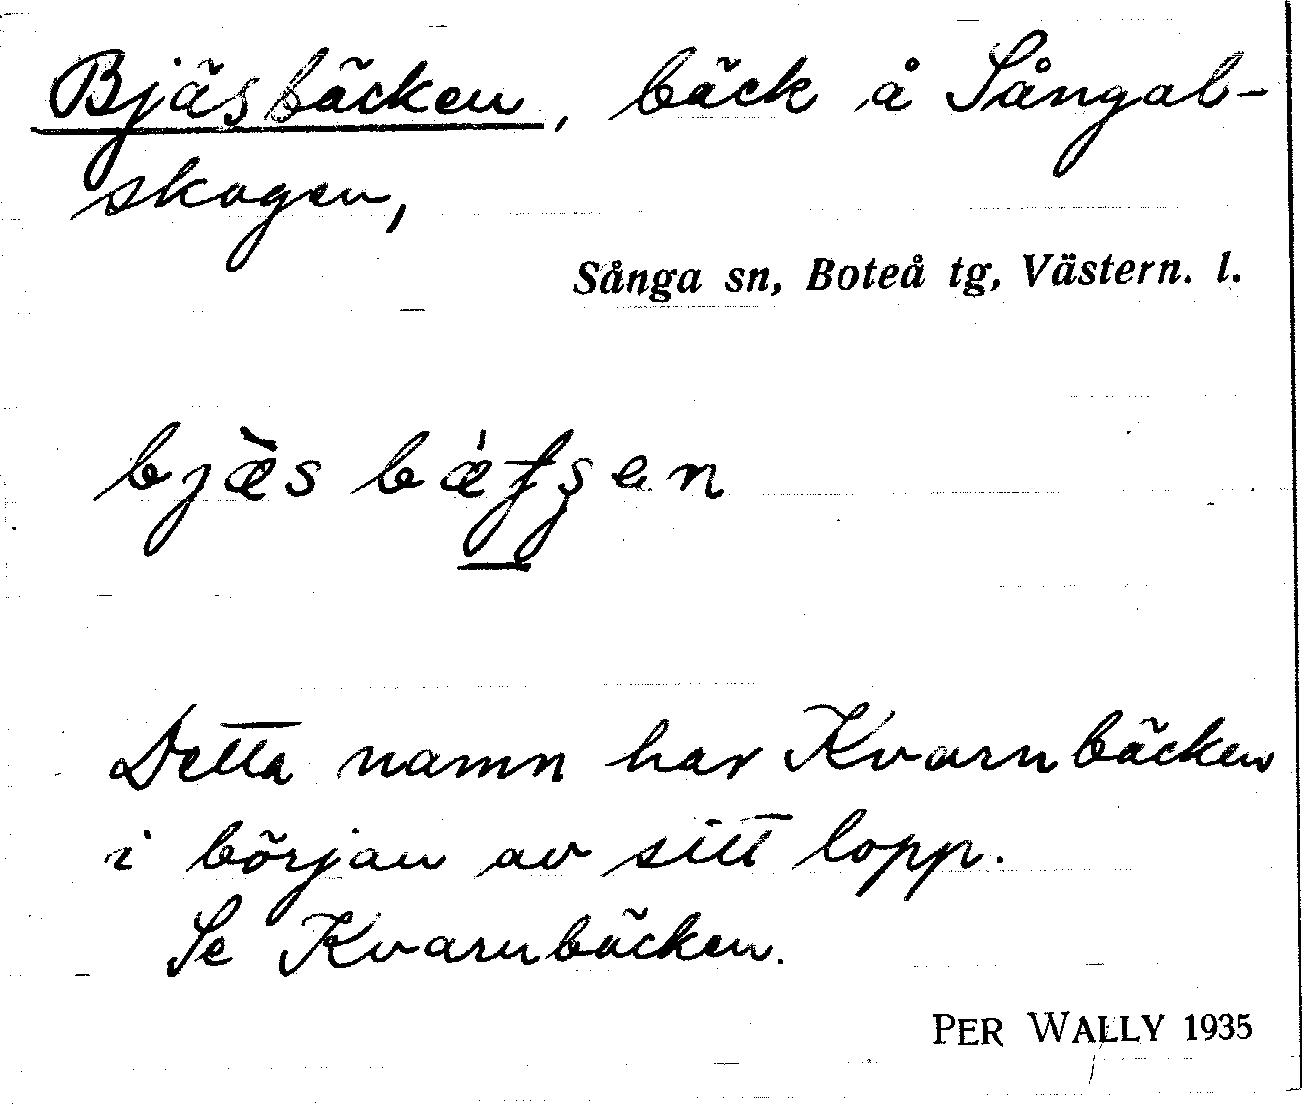 Bjäsbäcken, bäck å Sångal-
skogen,
Sånga sn, Boteå tg, Västern. l.
bjæ̀s bǽʈʂen
Detta namn har Kvarnbäcken
i början av sitt lopp.
Se Kvarnbäcken.
PER WALLY 1935